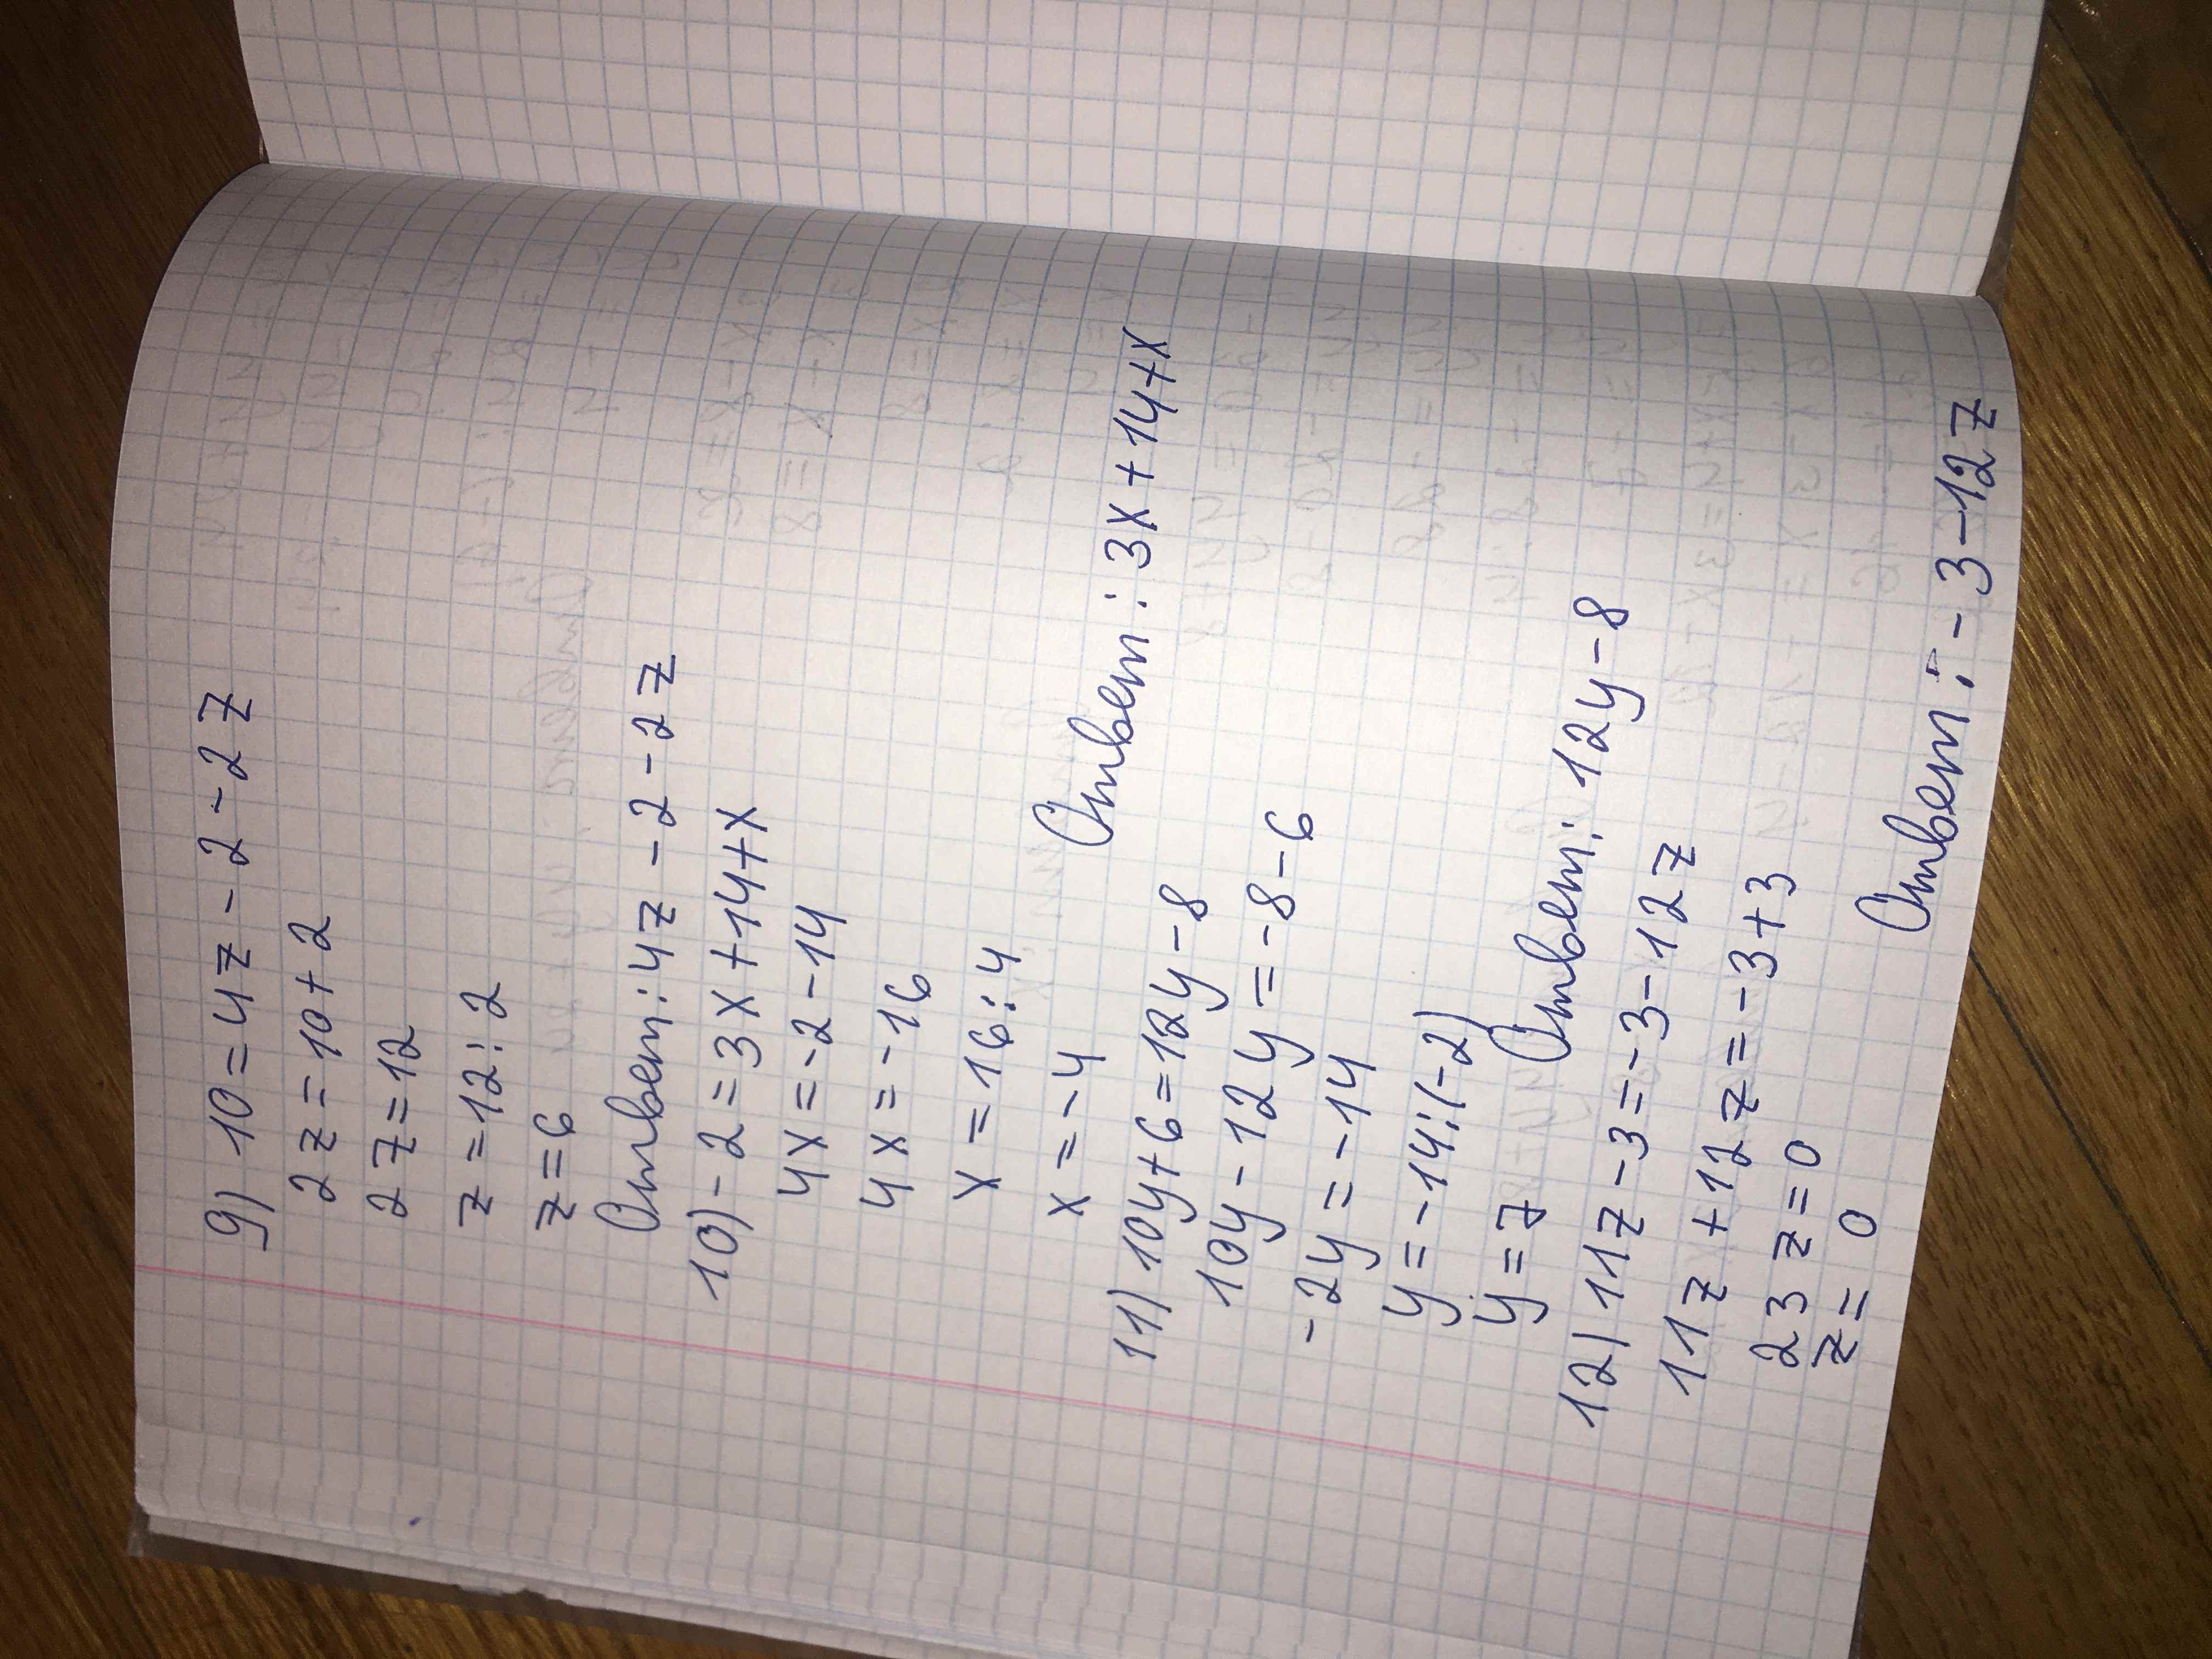 9) 10=4z-2-2z
2z=10+2
2z=12
z=12:2
z=6
Ответ: 4z-2-2z
10) -2=3x+14+x
4x=-2-14
4x=-16
x=16:4
x=-4
Ответ: 3x+14+x
11) 10y+6=12y-8
10y-12y=-8-6
-2y=-14
y=-14:(-2)
y=7
Ответ: 12y-8
12) 11z-3=-3-12z
11z+12z=-3+3
23z=0
z=0
Ответ: -3-12z